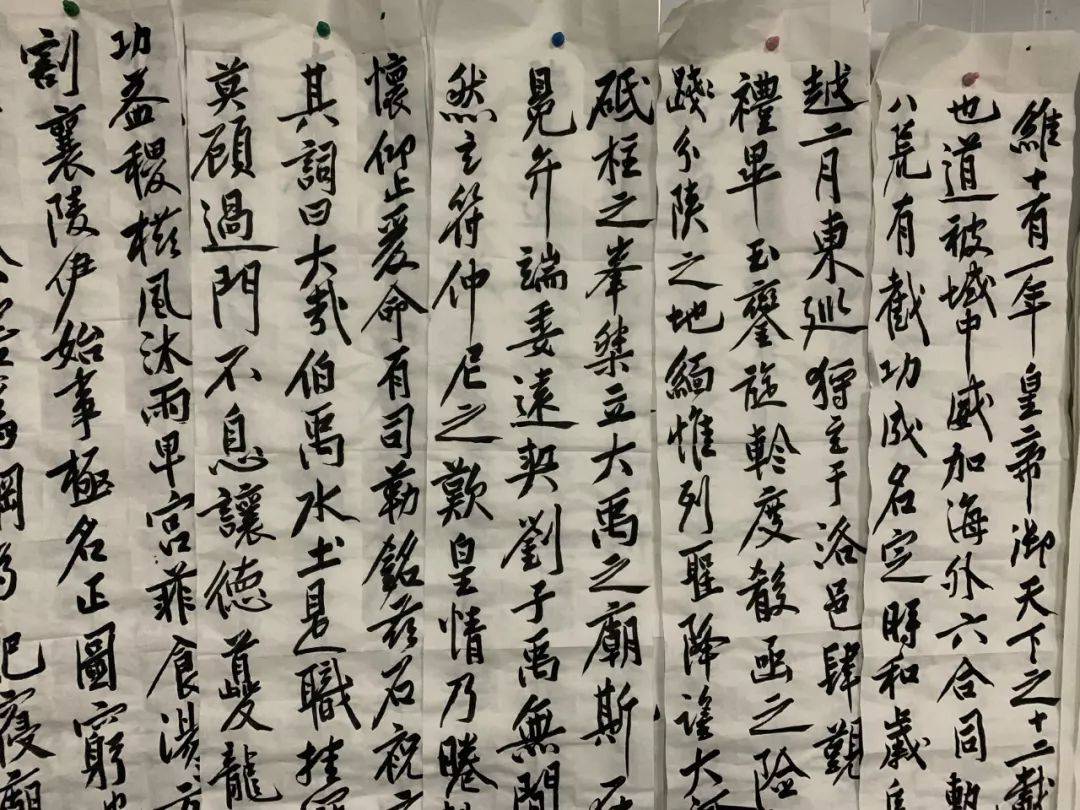 維十有一年皇帝御天下之十二載
也道被域中威加海外六合同軌
八荒有截功成名定時和歲
越二月東巡狩至于洛邑肆覲
禮畢玉鑾旋軫度殽函之險
踐分陝之地緬惟列聖降望大河
砥柱之峯桀立大禹之廟斯
冕弁端委遠契劉子禹無間
然玄符仲尼之歎皇情乃睠
懷仰止爰命有司勒銘茲石祝
其詞曰大哉伯禹水土是職挂冠
莫顧過門不息讓德夔龍
功益稷櫛風沐雨卑宮菲食湯湯方
割襄陵伊始事極名正圖窮地